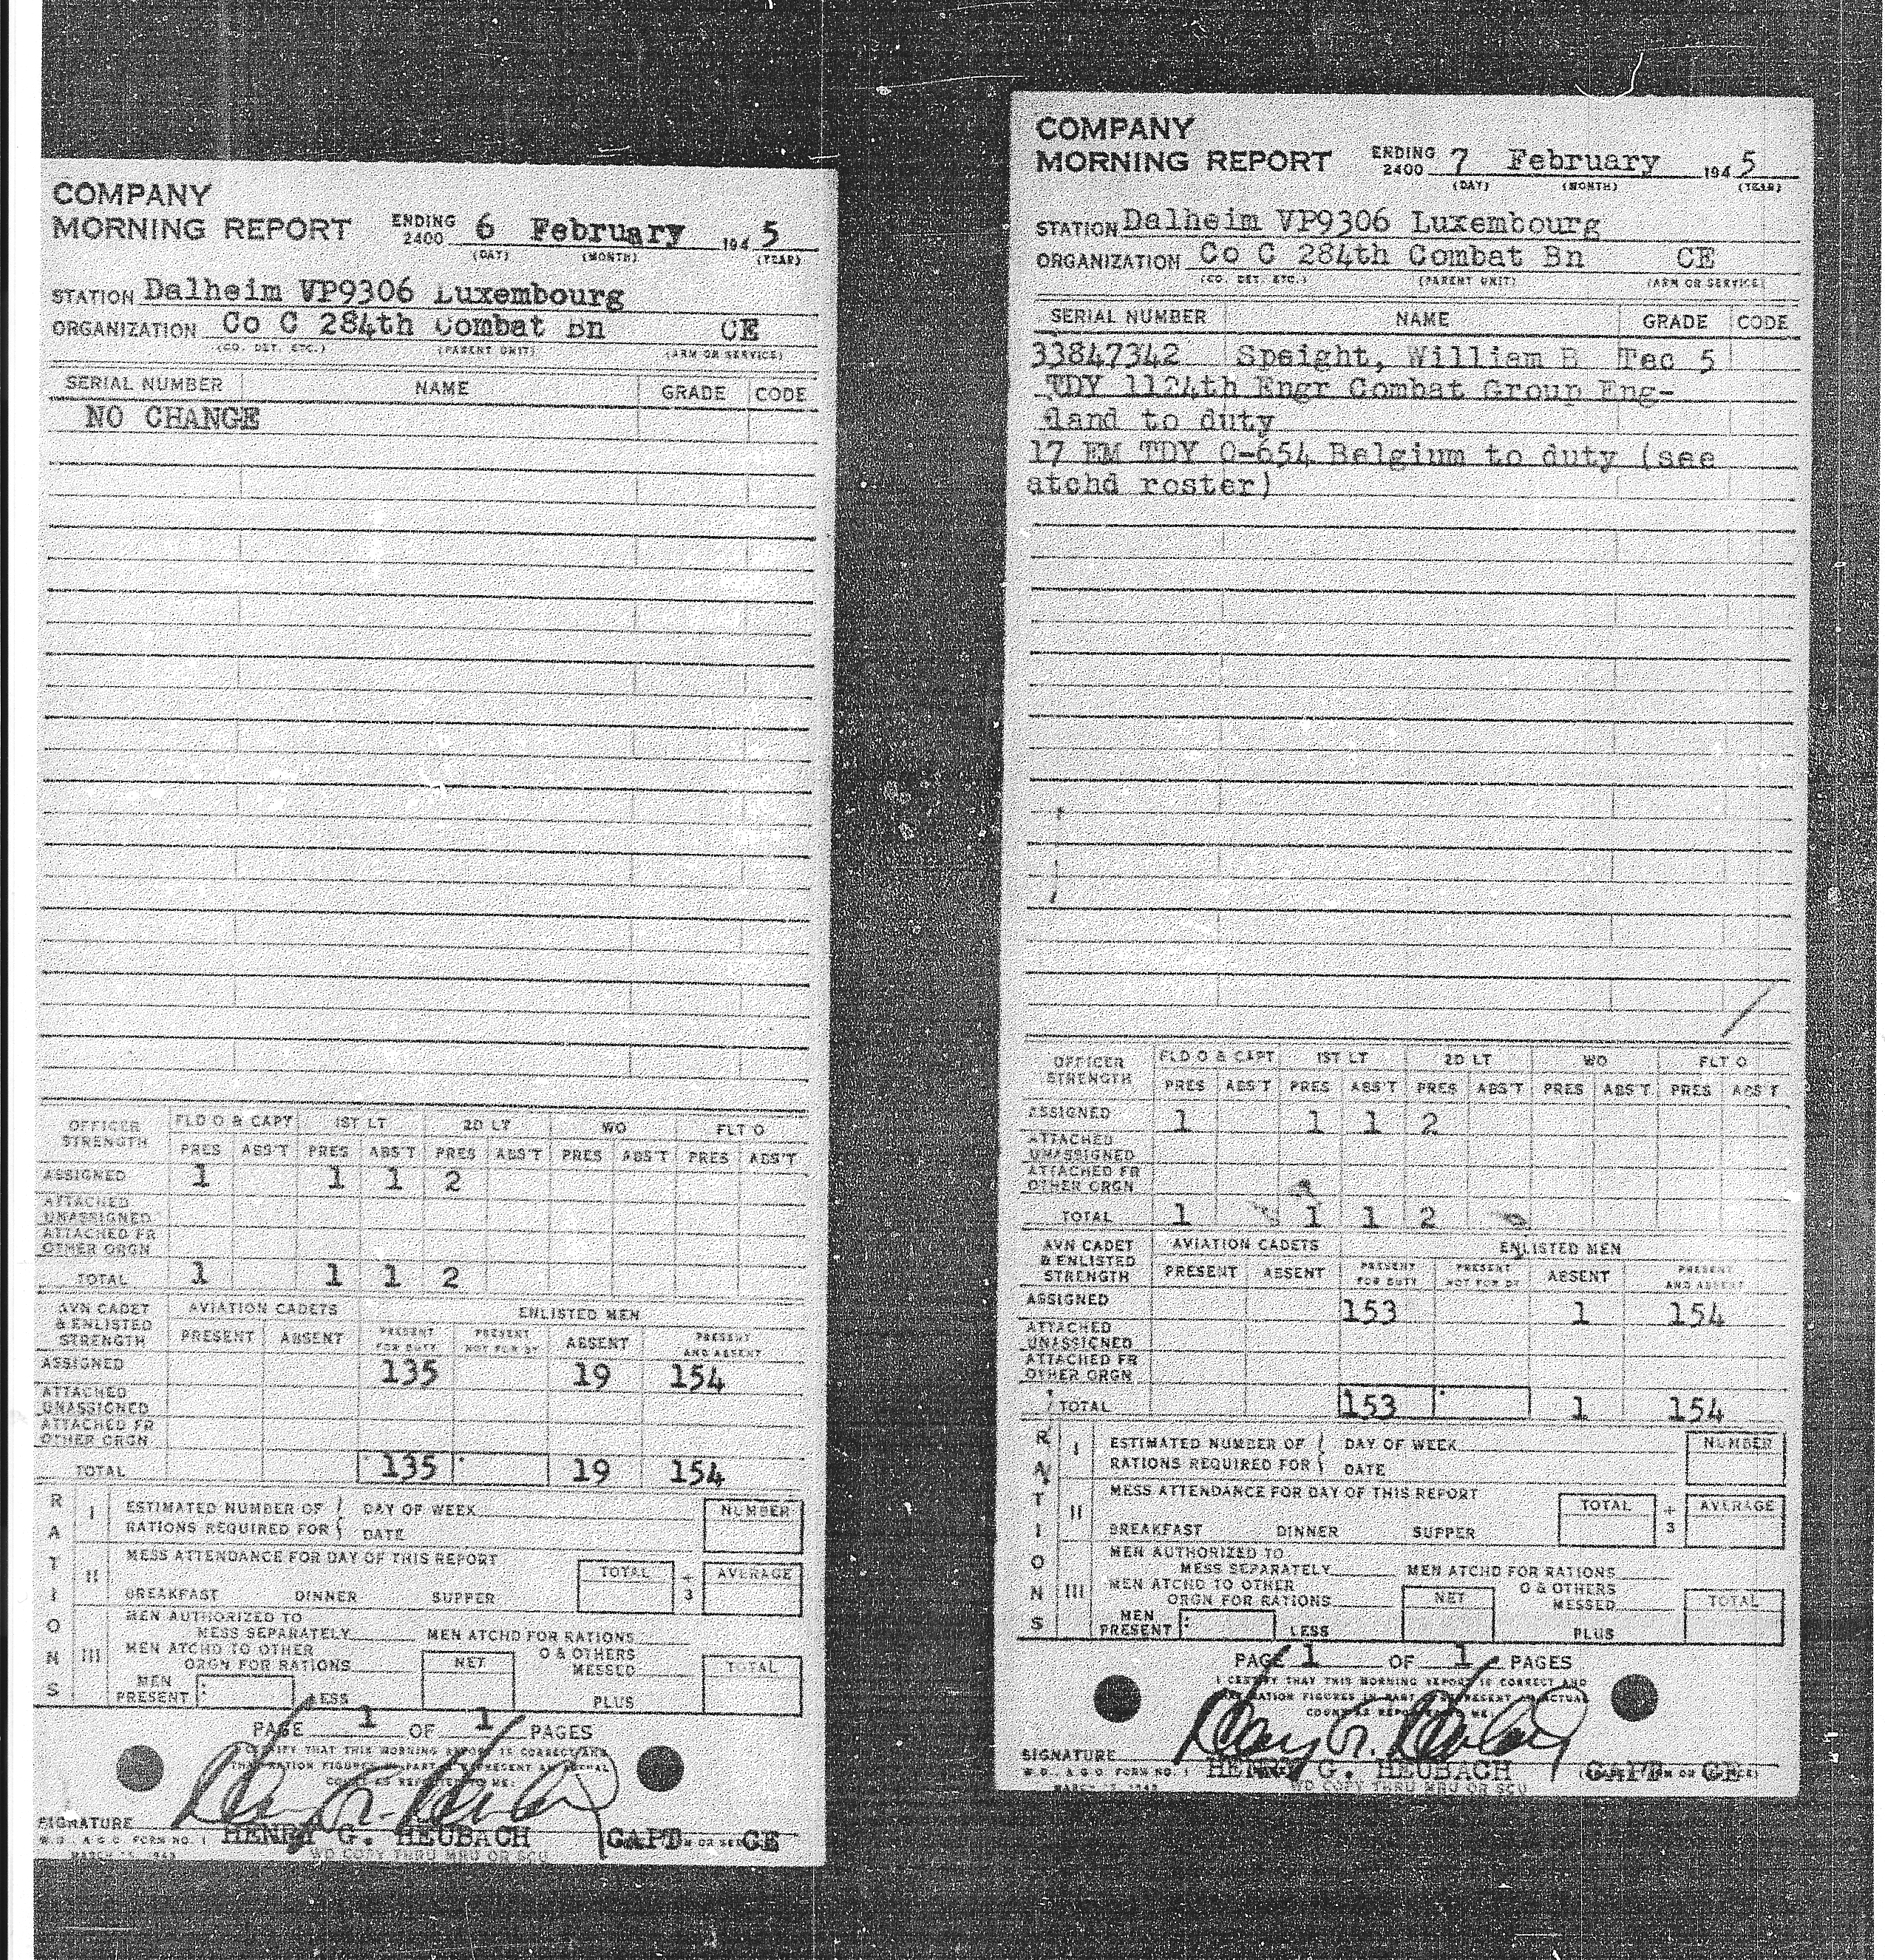 COMPANY
MORNING REPORT ENDING 2400 6 February 194 5
(DAY) (MONTH) (YEAR)
STATION Dalheim VP9306 Luxembourg
ORGANIZATION Co C 284th Combat Bn CE
(CO. DET. ETC.) (PARENT UNIT) (ARM OR SERVICE)
SERIAL NUMBER NAME GRADE CODE
NO CHANGE
OFFICER STRENGTH FLD O & CAPT 1ST LT 2D LT WO FLT O
PRES ABS'T PRES ABS'T PRES ABS'T PRES ABS'T PRES ABS'T
ASSIGNED 1 1 1 2
ATTACHED UNASSIGNED
ATTACHED FR OTHER ORGN
TOTAL 1 1 1 2
AVN CADET & ENLISTED STRENGTH AVIATION CADETS ENLISTED MEN
PRESENT ABSENT PRESENT FOR DUTY PRESENT NOT FOR DY ABSENT PRESENT AND ABSENT
ASSIGNED 135 19 154
ATTACHED UNASSIGNED
ATTACHED FR OTHER ORGN
TOTAL 135 19 154
RATIONS
I ESTIMATED NUMBER OF RATIONS REQUIRED FOR DAY OF WEEK DATE NUMBER
II MESS ATTENDANCE FOR DAY OF THIS REPORT
BREAKFAST DINNER SUPPER TOTAL ÷ 3 AVERAGE
III MEN AUTHORIZED TO MESS SEPARATELY MEN ATCHD FOR RATIONS
MEN ATCHD TO OTHER ORGN FOR RATIONS NET O & OTHERS MESSED TOTAL
MEN PRESENT LESS PLUS
PAGE 1 OF 1 PAGES
I CERTIFY THAT THIS MORNING REPORT IS CORRECT AND
THAT RATION FIGURES IN PART III REPRESENT AN ACTUAL
COUNT AS REPORTED TO ME:
SIGNATURE HENRY G. HEUBACH CAPT CE
W.D., A.G.O. FORM NO. 1
WD COPY THRU MRU OR SCU
COMPANY
MORNING REPORT ENDING 2400 7 February 194 5
(DAY) (MONTH) (YEAR)
STATION Dalheim VP9306 Luxembourg
ORGANIZATION Co C 284th Combat Bn CE
(CO. DET. ETC.) (PARENT UNIT) (ARM OR SERVICE)
SERIAL NUMBER NAME GRADE CODE
33847342 Speight, William B Tec 5
TDY 1124th Engr Combat Group Eng-
land to duty
17 EM TDY O-654 Belgium to duty (see
atchd roster)
OFFICER STRENGTH FLD O & CAPT 1ST LT 2D LT WO FLT O
PRES ABS'T PRES ABS'T PRES ABS'T PRES ABS'T PRES ABS'T
ASSIGNED 1 1 1 2
ATTACHED UNASSIGNED
ATTACHED FR OTHER ORGN
TOTAL 1 1 1 2
AVN CADET & ENLISTED STRENGTH AVIATION CADETS ENLISTED MEN
PRESENT ABSENT PRESENT FOR DUTY PRESENT NOT FOR DY ABSENT PRESENT AND ABSENT
ASSIGNED 153 1 154
ATTACHED UNASSIGNED
ATTACHED FR OTHER ORGN
TOTAL 153 1 154
RATIONS
I ESTIMATED NUMBER OF RATIONS REQUIRED FOR DAY OF WEEK DATE NUMBER
II MESS ATTENDANCE FOR DAY OF THIS REPORT
BREAKFAST DINNER SUPPER TOTAL ÷ 3 AVERAGE
III MEN AUTHORIZED TO MESS SEPARATELY MEN ATCHD FOR RATIONS
MEN ATCHD TO OTHER ORGN FOR RATIONS NET O & OTHERS MESSED TOTAL
MEN PRESENT LESS PLUS
PAGE 1 OF 1 PAGES
I CERTIFY THAT THIS MORNING REPORT IS CORRECT AND
RATION FIGURES IN PART III REPRESENT AN ACTUAL
COUNT AS REPORTED TO ME:
SIGNATURE HENRY G. HEUBACH CAPT CE
W.D., A.G.O. FORM NO. 1
WD COPY THRU MRU OR SCU